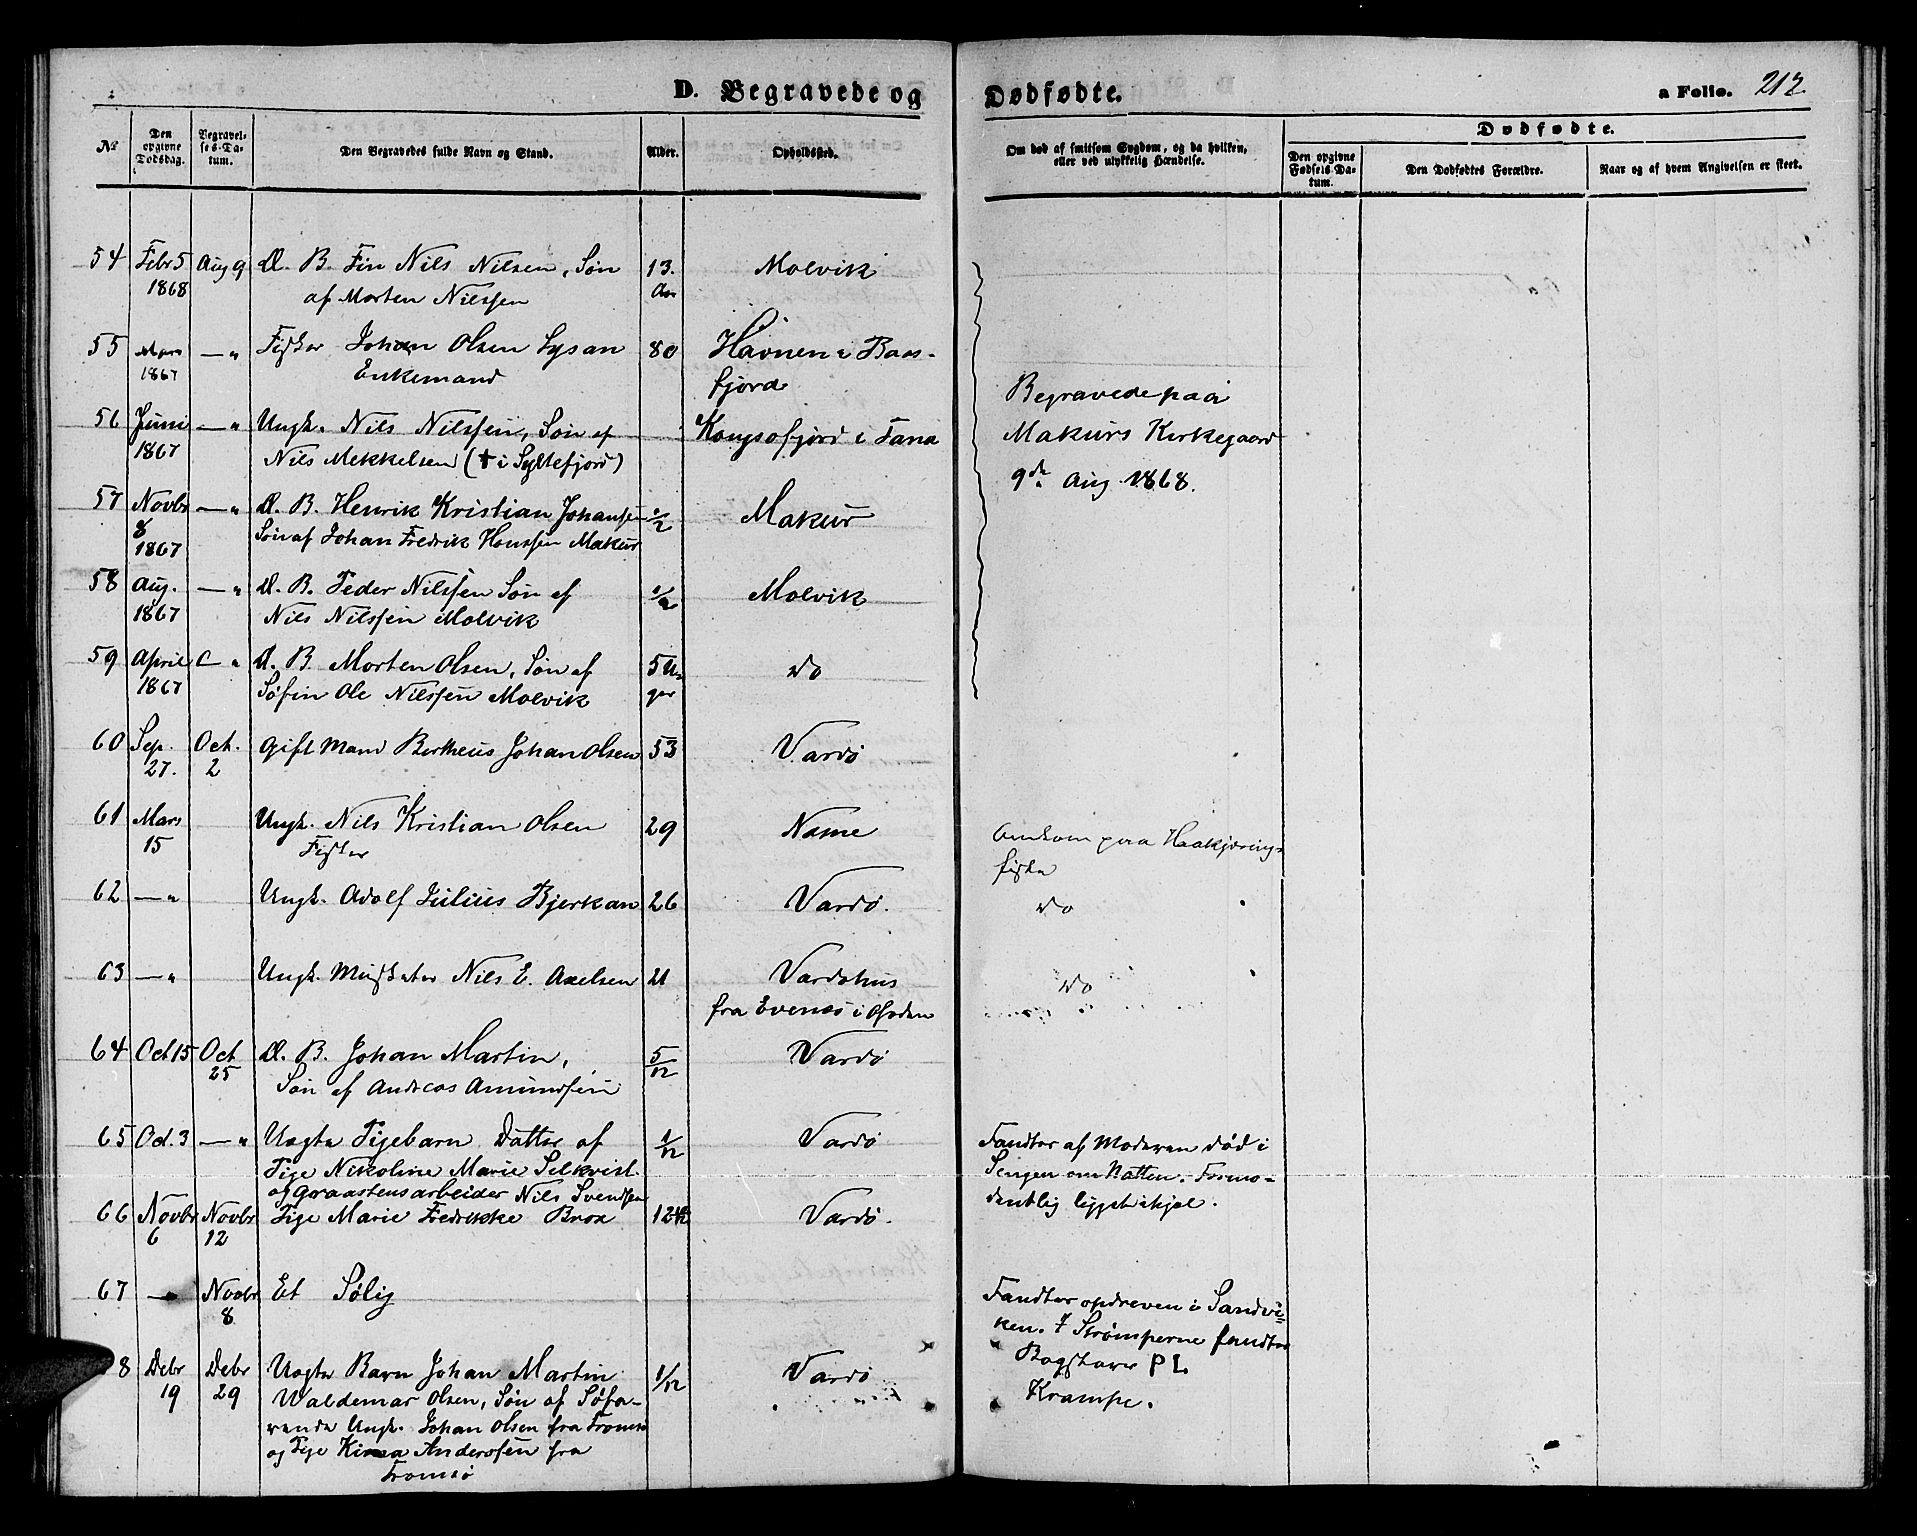 D. Begravede og Dødfødte.
a Folio. 212.
No
Den opgivne Dødsdag.
Begravelses-Datum.
Den Begravedes fulde Navn og Stand.
Alder.
Opholdssted.
Om død af smitsom Sygdom, og da hvilken, eller ved ulykkelig Hændelse.
Dødfødte.
Den opgivne Fødsels-Datum.
Den Dødfødtes Forældre.
Naar og af hvem Angivelsen er skeet.
54 Febr 5 Aug 9 Æ. B. Fin Nils Nilsen, Søn 13. Molvik
1868 af Morten Nilssen Aar
55 Mars — " Fisker Johan Olsen Lysan 80 Havnen i Baas-
1867 Enkemand fjord
Begravede paa
56 Juni — " Ungk. Nils Nilssen, Søn af Kongsofjord i Tana
1867 Nils Mekkelsen († i Syltefjord)
Makurs Kirkegaard
9de Aug 1868.
57 Novbr — " Æ. B. Henrik Kristian Johansen 1/2 Makur
8 Søn af Johan Fredrik Hanssen Makur
1867
58 Aug. — " Æ. B. Peder Nilssen Søn af 1/2 Molvik
1867 Nils Nilssen Molvik
59 April — " Æ. B. Morten Olsen, Søn af 5 U- do
1867 Søfin Ole Nilssen Molvik ger
60 Sep. Oct. Gift Mand Bertheus Johan Olsen 53 Vardø
27. 2
61 Mars Ungk. Nils Kristian Olsen 29 Name Omkom paa Haakjærings-
15 Fisker fiske
62 — " Ungk. Adolf Julius Bjerkan 26 Vardø. do
63 — " Ungk. Musketer Nils E. Axelsen 21 Vardøhus do
fra Evenæs i Ofoden
64 Oct 15 Oct Æ. B. Johan Martin, 5/12 Vardø
25 Søn af Andreas Amundsen
65 Oct. 3 — " Uægte Pigebarn Datter af 1/12 Vardø Fandtes af Moderen død i
Pige Nikoline Marie Selkvist Sengen om Natten. Formo-
og Graastensarbeider Nils Svendsen dentlig ligget ihjel.
66 Novbr Novbr Pige Marie Fredrikke Brox 12 Vardø.
6 12
67 — " Novbr Et Sølig Fandtes opdreven i Sandvi-
8 ken. I Strømperne fandtes
Bogstaver P L
Krampe.
68 Debr Debr Uægte Barn Johan Martin 1/12 Vardø
19 29 Waldemar Olsen, Søn af Søfa-
rende Ungk. Johan Olsen fra Tromsø
og Pige Kirsa Anderssen fra
Tromsø